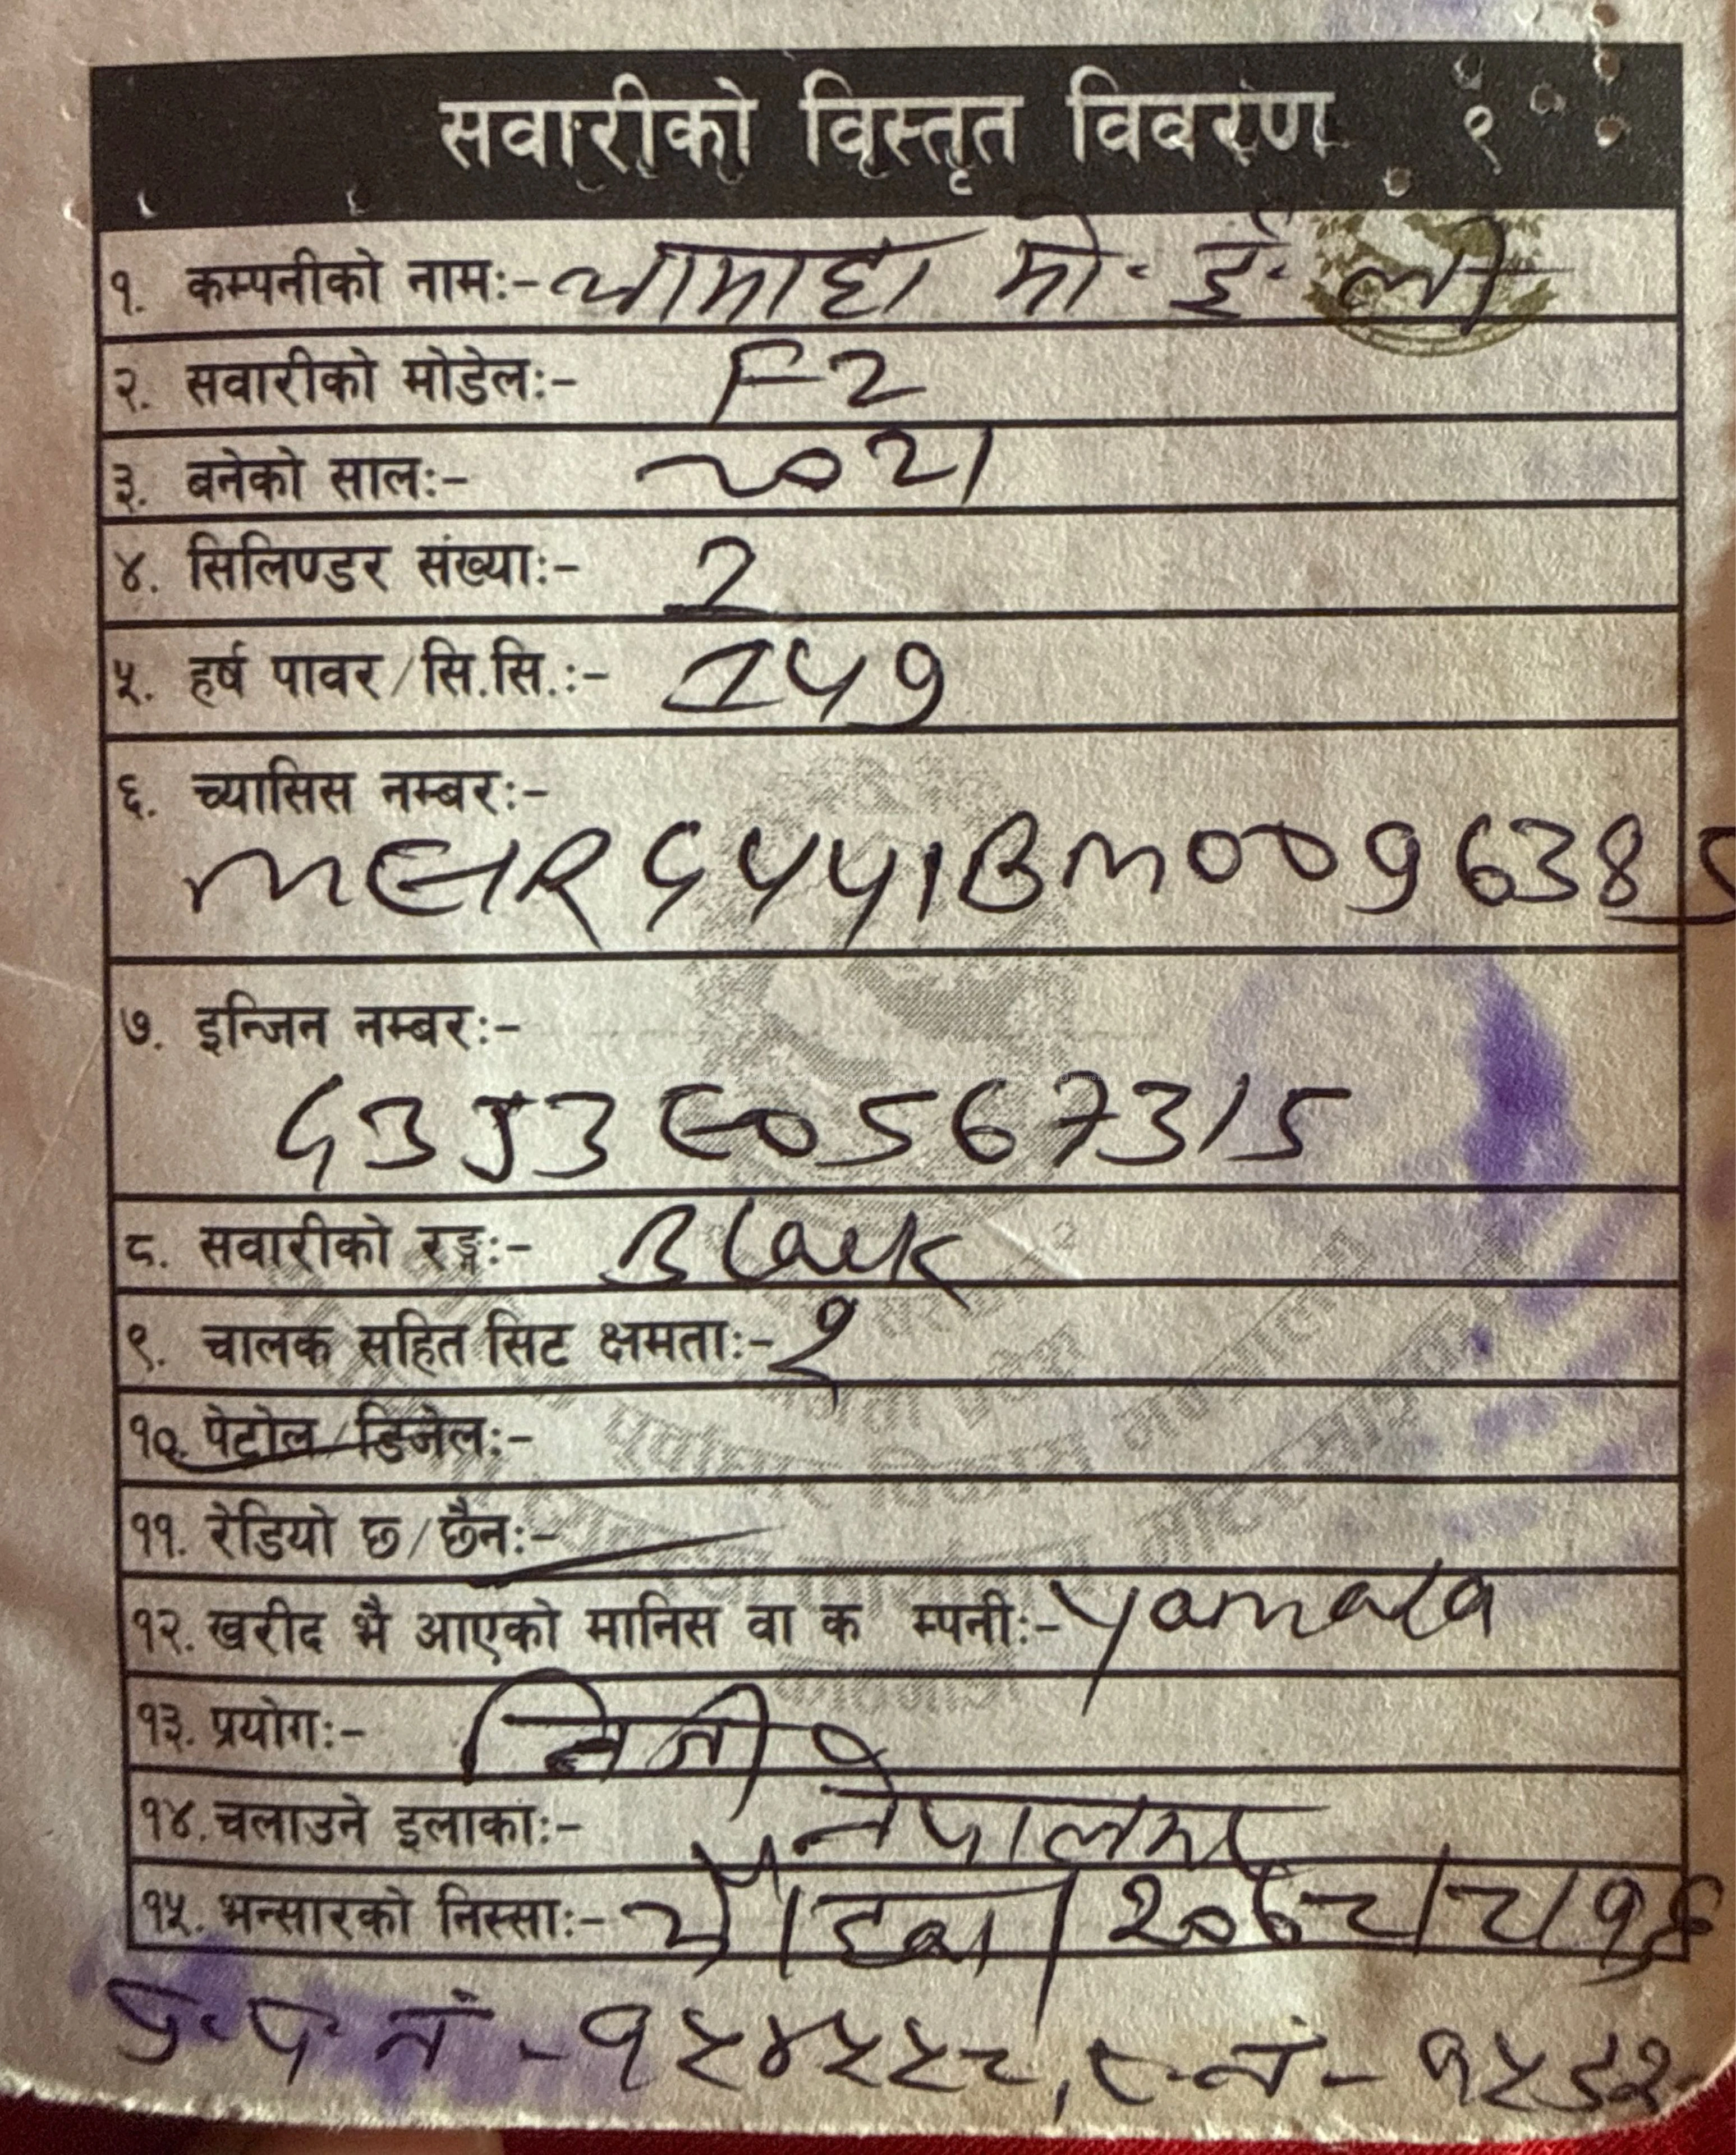 सवारीको विस्तृत विवरण १
१. कम्पनीको नाम:- यामाहा मो. ई. ली
२. सवारीको मोडेल:- FZ
३. बनेको साल:- 2021
४. सिलिण्डर संख्या:- 2
५. हर्ष पावर/सि.सि.:- 149
६. च्यासिस नम्बर:-
ME1RG4441BM0096385
७. इन्जिन नम्बर:-
G3J3E0567315
८. सवारीको रङ्ग:- Black
९. चालक सहित सिट क्षमता:- २
१०. पेट्रोल/डिजेल:-
११. रेडियो छ/छैन:-
१२. खरीद भै आएको मानिस वा क म्पनी:- Yamaha
१३. प्रयोग:- निजी
१४. चलाउने इलाका:- नेपालभर
१५. भन्सारको निस्सा:- २०७८/८/१६
प्र. प. नं - १५४५५८, र. नं - १५६२